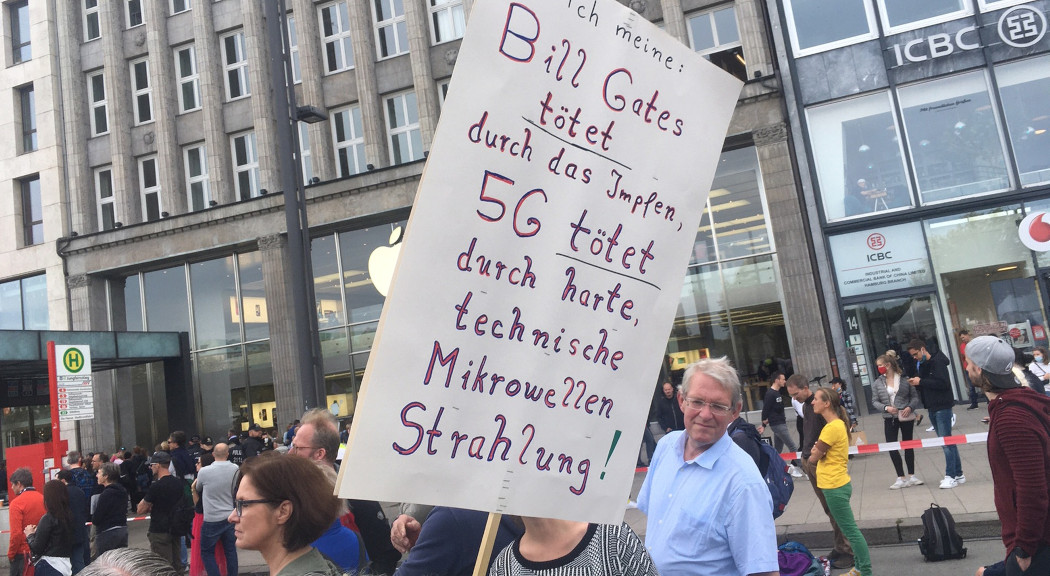 ich meine:
Bill Gates
tötet
durch das Impfen,
5G tötet
durch harte,
technische
Mikrowellen
Strahlung!
ICBC
ICBC
INDUSTRIAL AND
COMMERCIAL BANK OF CHINA LIMITED
HAMBURG BRANCH
14
H